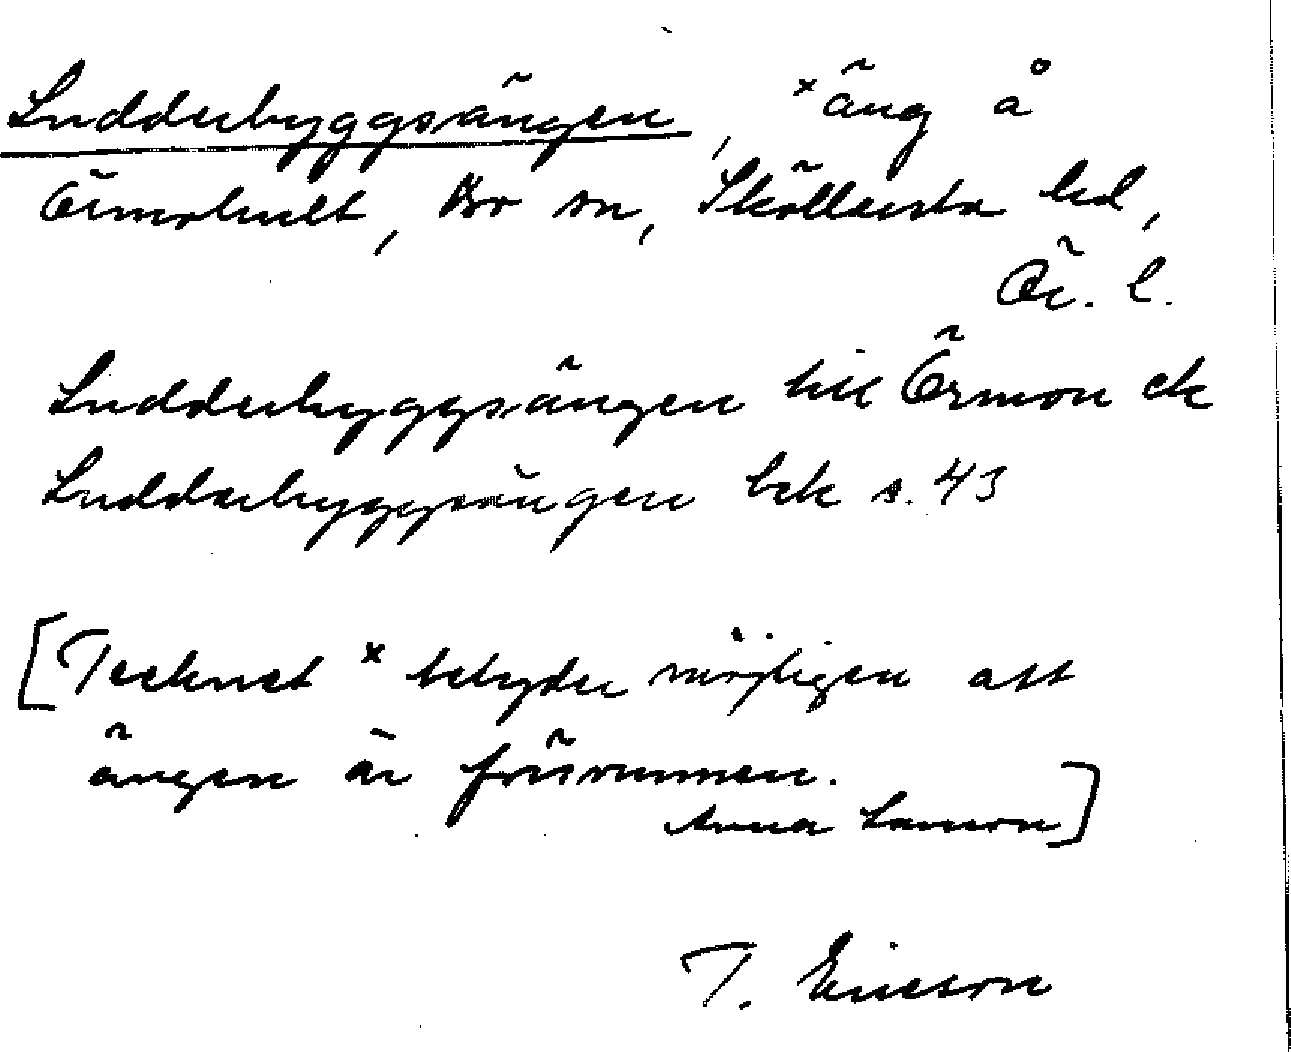 Ludderbyggsängen, ˣäng å
Örmohult, Bo sn, Sköllersta hd,
Ör. l.
Ludderbyggsängen till Örmon ek
Ludderbyggsängen bek s. 43
[Tecknet ˣ betyder möjligen att
ängen är försvunnen.
Anna Larsson]
T. Ericson